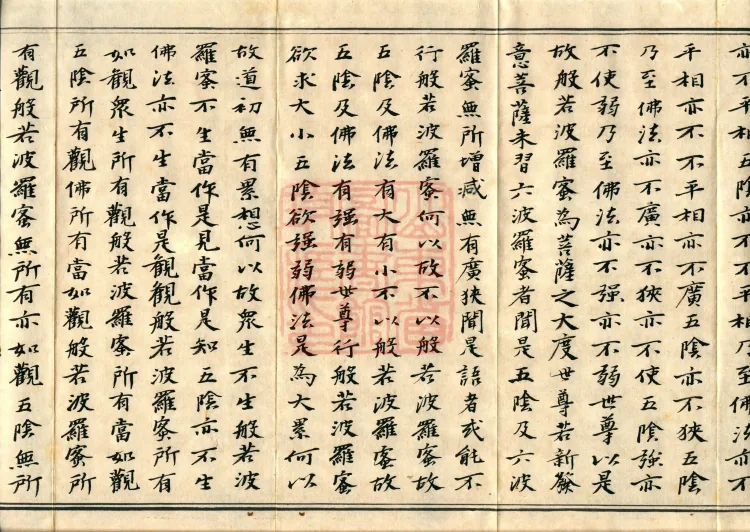 亦不平相五陰亦不不平相乃至佛法亦不
平相亦不不平相亦不廣五陰亦不狹五陰
乃至佛法亦不廣亦不狹亦不使五陰強亦
不使弱乃至佛法亦不强亦不弱世尊以是
故般若波羅蜜為菩薩之大度世尊若新發
意菩薩未習六波羅蜜者聞是五陰及六波
羅蜜無所增減無有廣狹聞是語者或能不
行般若波羅蜜何以故不以般若波羅蜜故
五陰及佛法有大有小不以般若波羅蜜故
五陰及佛法有强有弱世尊行般若波羅蜜
欲求大小五陰欲强弱佛法是為大累何以
故道初無有累想何以故眾生不生般若波
羅蜜不生當作是見當作是知五陰亦不生
佛法亦不生當作是觀觀般若波羅蜜所有
如觀眾生所有觀般若波羅蜜所有當如觀
五陰所有觀佛所有當如觀般若波羅蜜所
有觀般若波羅蜜無所有亦如觀五陰無所